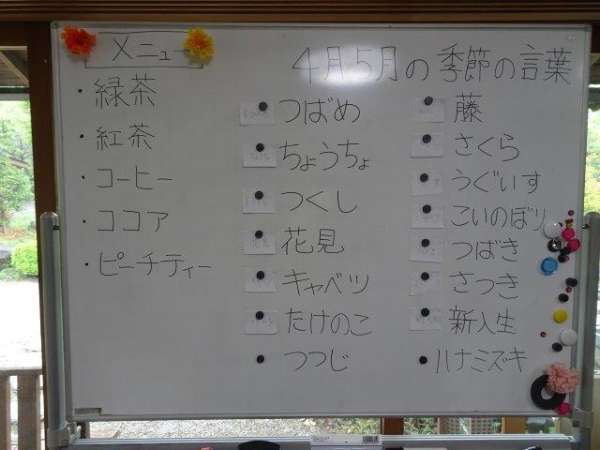 メニュー
・緑茶
・紅茶
・コーヒー
・ココア
・ピーチティー
4月5月の季節の言葉
つばめ
ちょうちょ
つくし
花見
キャベツ
たけのこ
つつじ
藤
さくら
うぐいす
こいのぼり
つばき
さつき
新入生
ハナミズキ